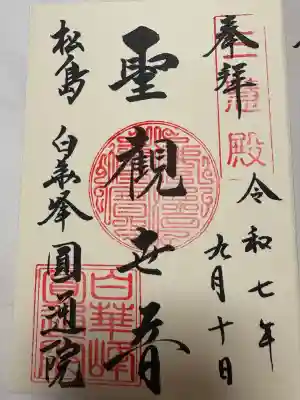 奉拝
三慧殿
令和七年
九月十日
聖觀世音
松島 白華峰 圓通院
白華峰